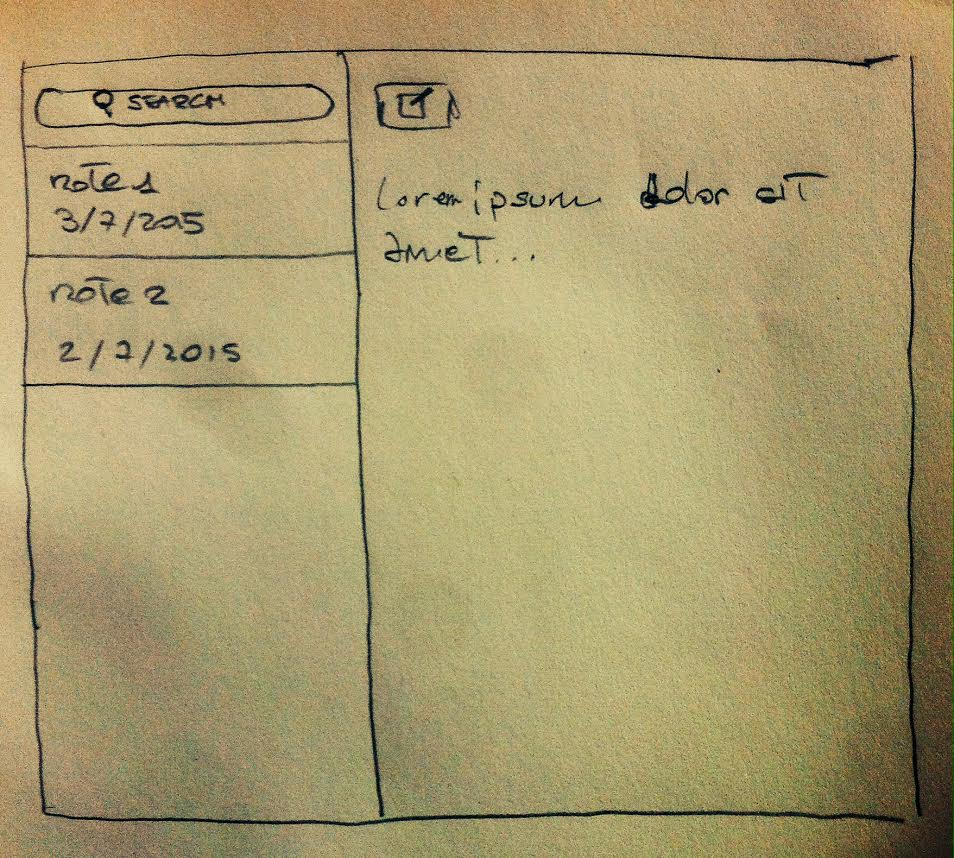 SEARCH
note 1
3/7/2015
note 2
2/7/2015
Lorem ipsum dolor sit
amet...